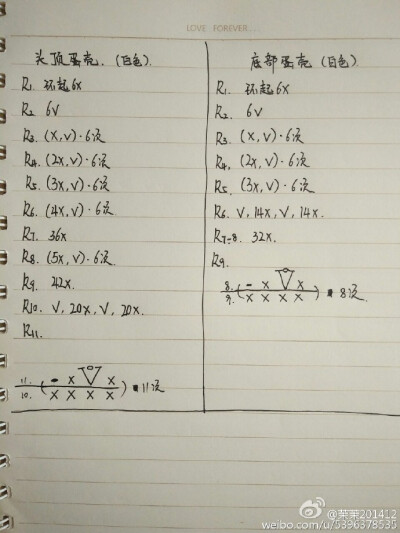 LOVE FOREVER...
头顶蛋壳.(白色)
R1. 环起6X
R2 6V
R3. (X,V)·6次
R4. (2X,V)·6次
R5. (3X,V)·6次
R6. (4X,V)·6次
R7. 36X
R8. (5X,V)·6次
R9. 42X
R10. V, 20X, V, 20X
R11.
11. (- X V X)
10. X X X X · 11次
底部蛋壳(白色)
R1. 环起6X
R2. 6V
R3 (X,V)·6次
R4, (2X,V)·6次
R5. (3X,V)·6次
R6. V, 14X, V, 14X.
R7-8. 32X.
R9.
8. (- X V X)
9. X X X X · 8次
@茉茉201412
weibo.com/u/5396378535